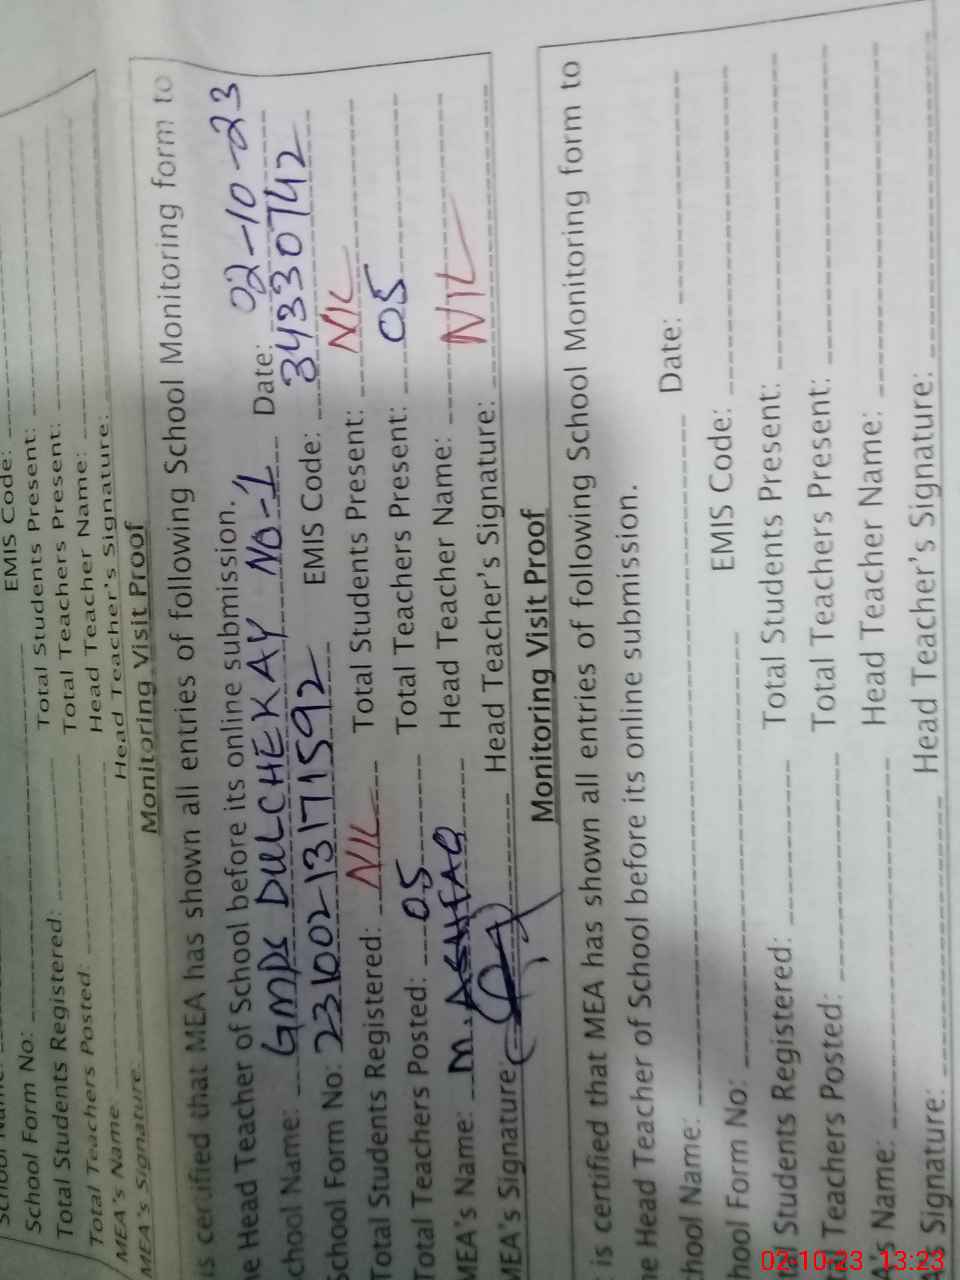 EMIS Code:
School Form No:
Total Students Present:
Total Students Registered:
Total Teachers Present:
Total Teachers Posted:
Head Teacher Name:
MEA's Name
Head Teacher's Signature:
MEA's Signature:
Monitoring Visit Proof
is certified that MEA has shown all entries of following School Monitoring form to
he Head Teacher of School before its online submission.
chool Name: GMPS DULCHEKAY NO-1 Date: 02-10-23
School Form No: 231002-13171592 EMIS Code: 34330742
Total Students Registered: NIL Total Students Present: NIL
Total Teachers Posted: 05 Total Teachers Present: 05
MEA's Name: M. ASHFAQ Head Teacher Name: NIL
MEA's Signature: Head Teacher's Signature:
Monitoring Visit Proof
is certified that MEA has shown all entries of following School Monitoring form to
he Head Teacher of School before its online submission.
chool Name: Date:
hool Form No: EMIS Code:
Students Registered: Total Students Present:
Teachers Posted: Total Teachers Present:
's Name: Head Teacher Name:
Signature: Head Teacher's Signature:
02-10-23 13:23